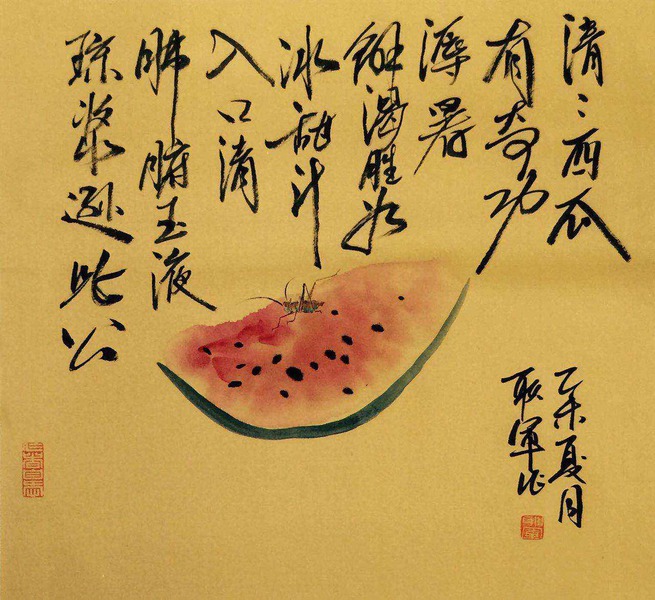 清〻西瓜
有奇功
溽暑
解渴胜如
冰甜汁
入口清
肺腑玉液
琼浆逊此公
乙未夏月
军作